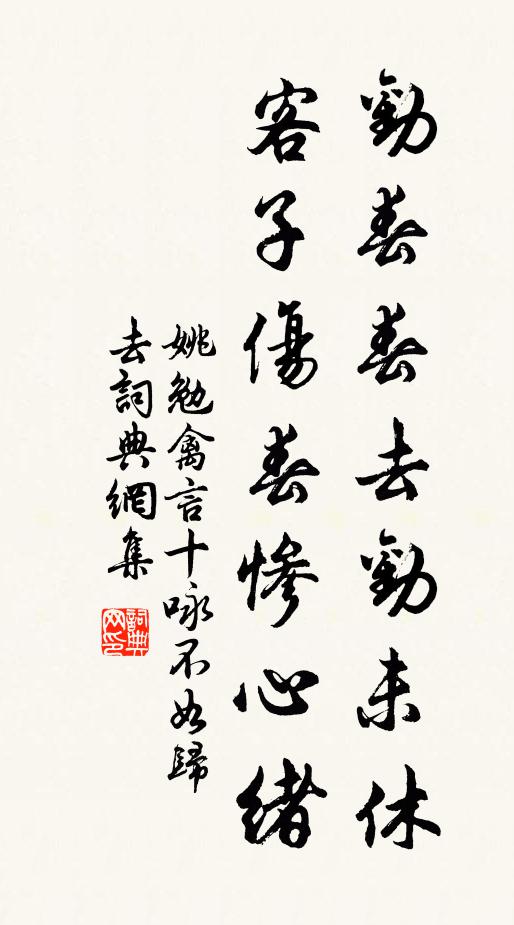 勸春春去勸未休
客子傷春慘心緒
姚勉禽言十咏不如歸
去詞典網集
詞典网印